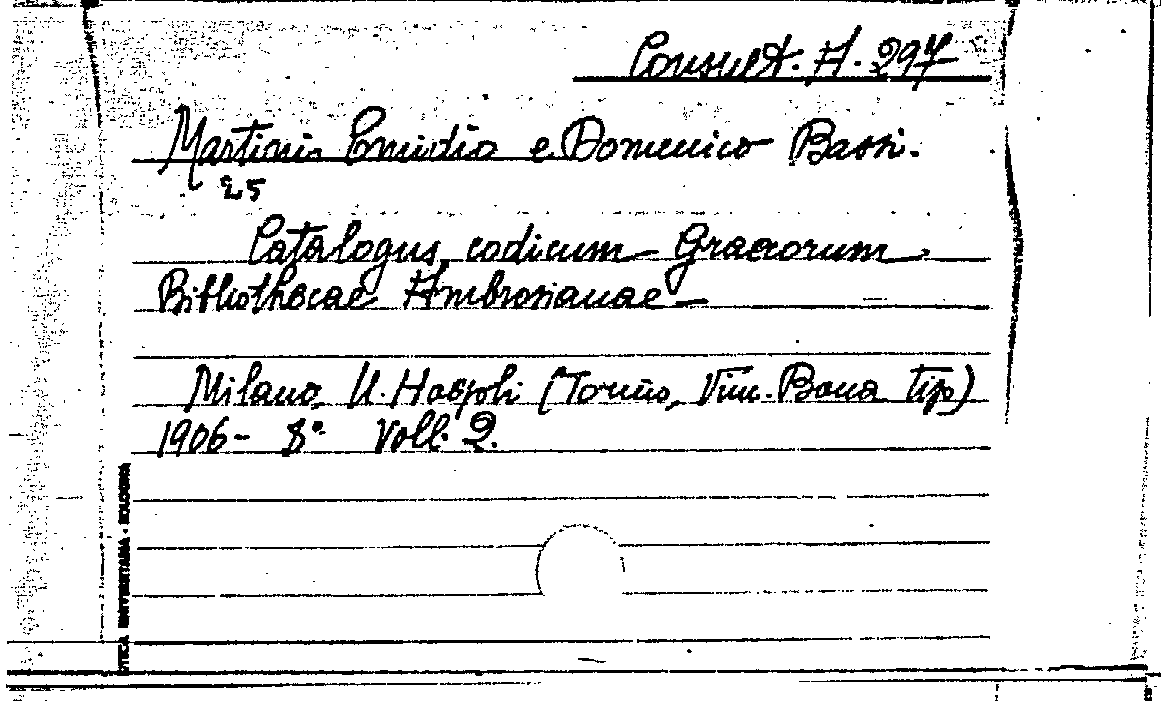 Consult. A. 297
Martini Emidio e Domenico Bassi.
25
Catalogus codicum Graecorum
Bibliothecae Ambrosianae
Milano, U. Hoepli (Torino, Vinc. Bona tip)
1906- 8° Voll. 2.
UNIVERSITARIA - BOLOGNA